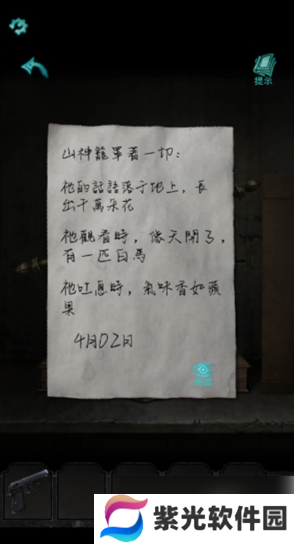 提示
山神籠罩着一切：
他的話語落于地上，長
出千萬朵花
他觀看時，像天開了，
有一匹白馬
他吐息時，氣味香如蘋
果
4月02日
紫光软件园